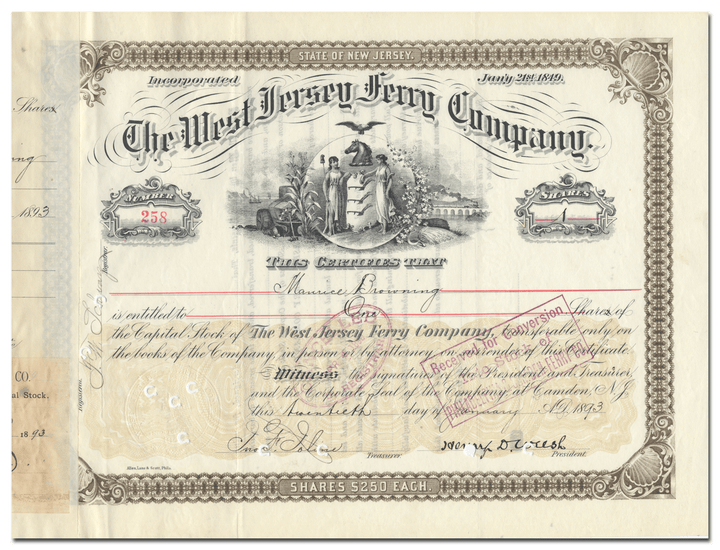 STATE OF NEW JERSEY.
Incorporated Jan'y 21st 1849.
The West Jersey Ferry Company.
NUMBER
258
SHARES
1
THIS CERTIFIES THAT
Maurice Browning
is entitled to One Shares of
the Capital Stock of The West Jersey Ferry Company, transferable only on
the books of the Company, in person or by attorney on surrender of this Certificate.
Witness, the signatures of the President and Treasurer,
and the Corporate Seal of the Company at Camden, N.J.
this twentieth day of January A.D. 1893
Treasurer.
Henry D. Welsh
President.
Allen, Lane & Scott, Phila.
SHARES $250 EACH.
Received for Conversion
Registered
Registrar.
Shares
ng
1893
CO.
al Stock.
1893